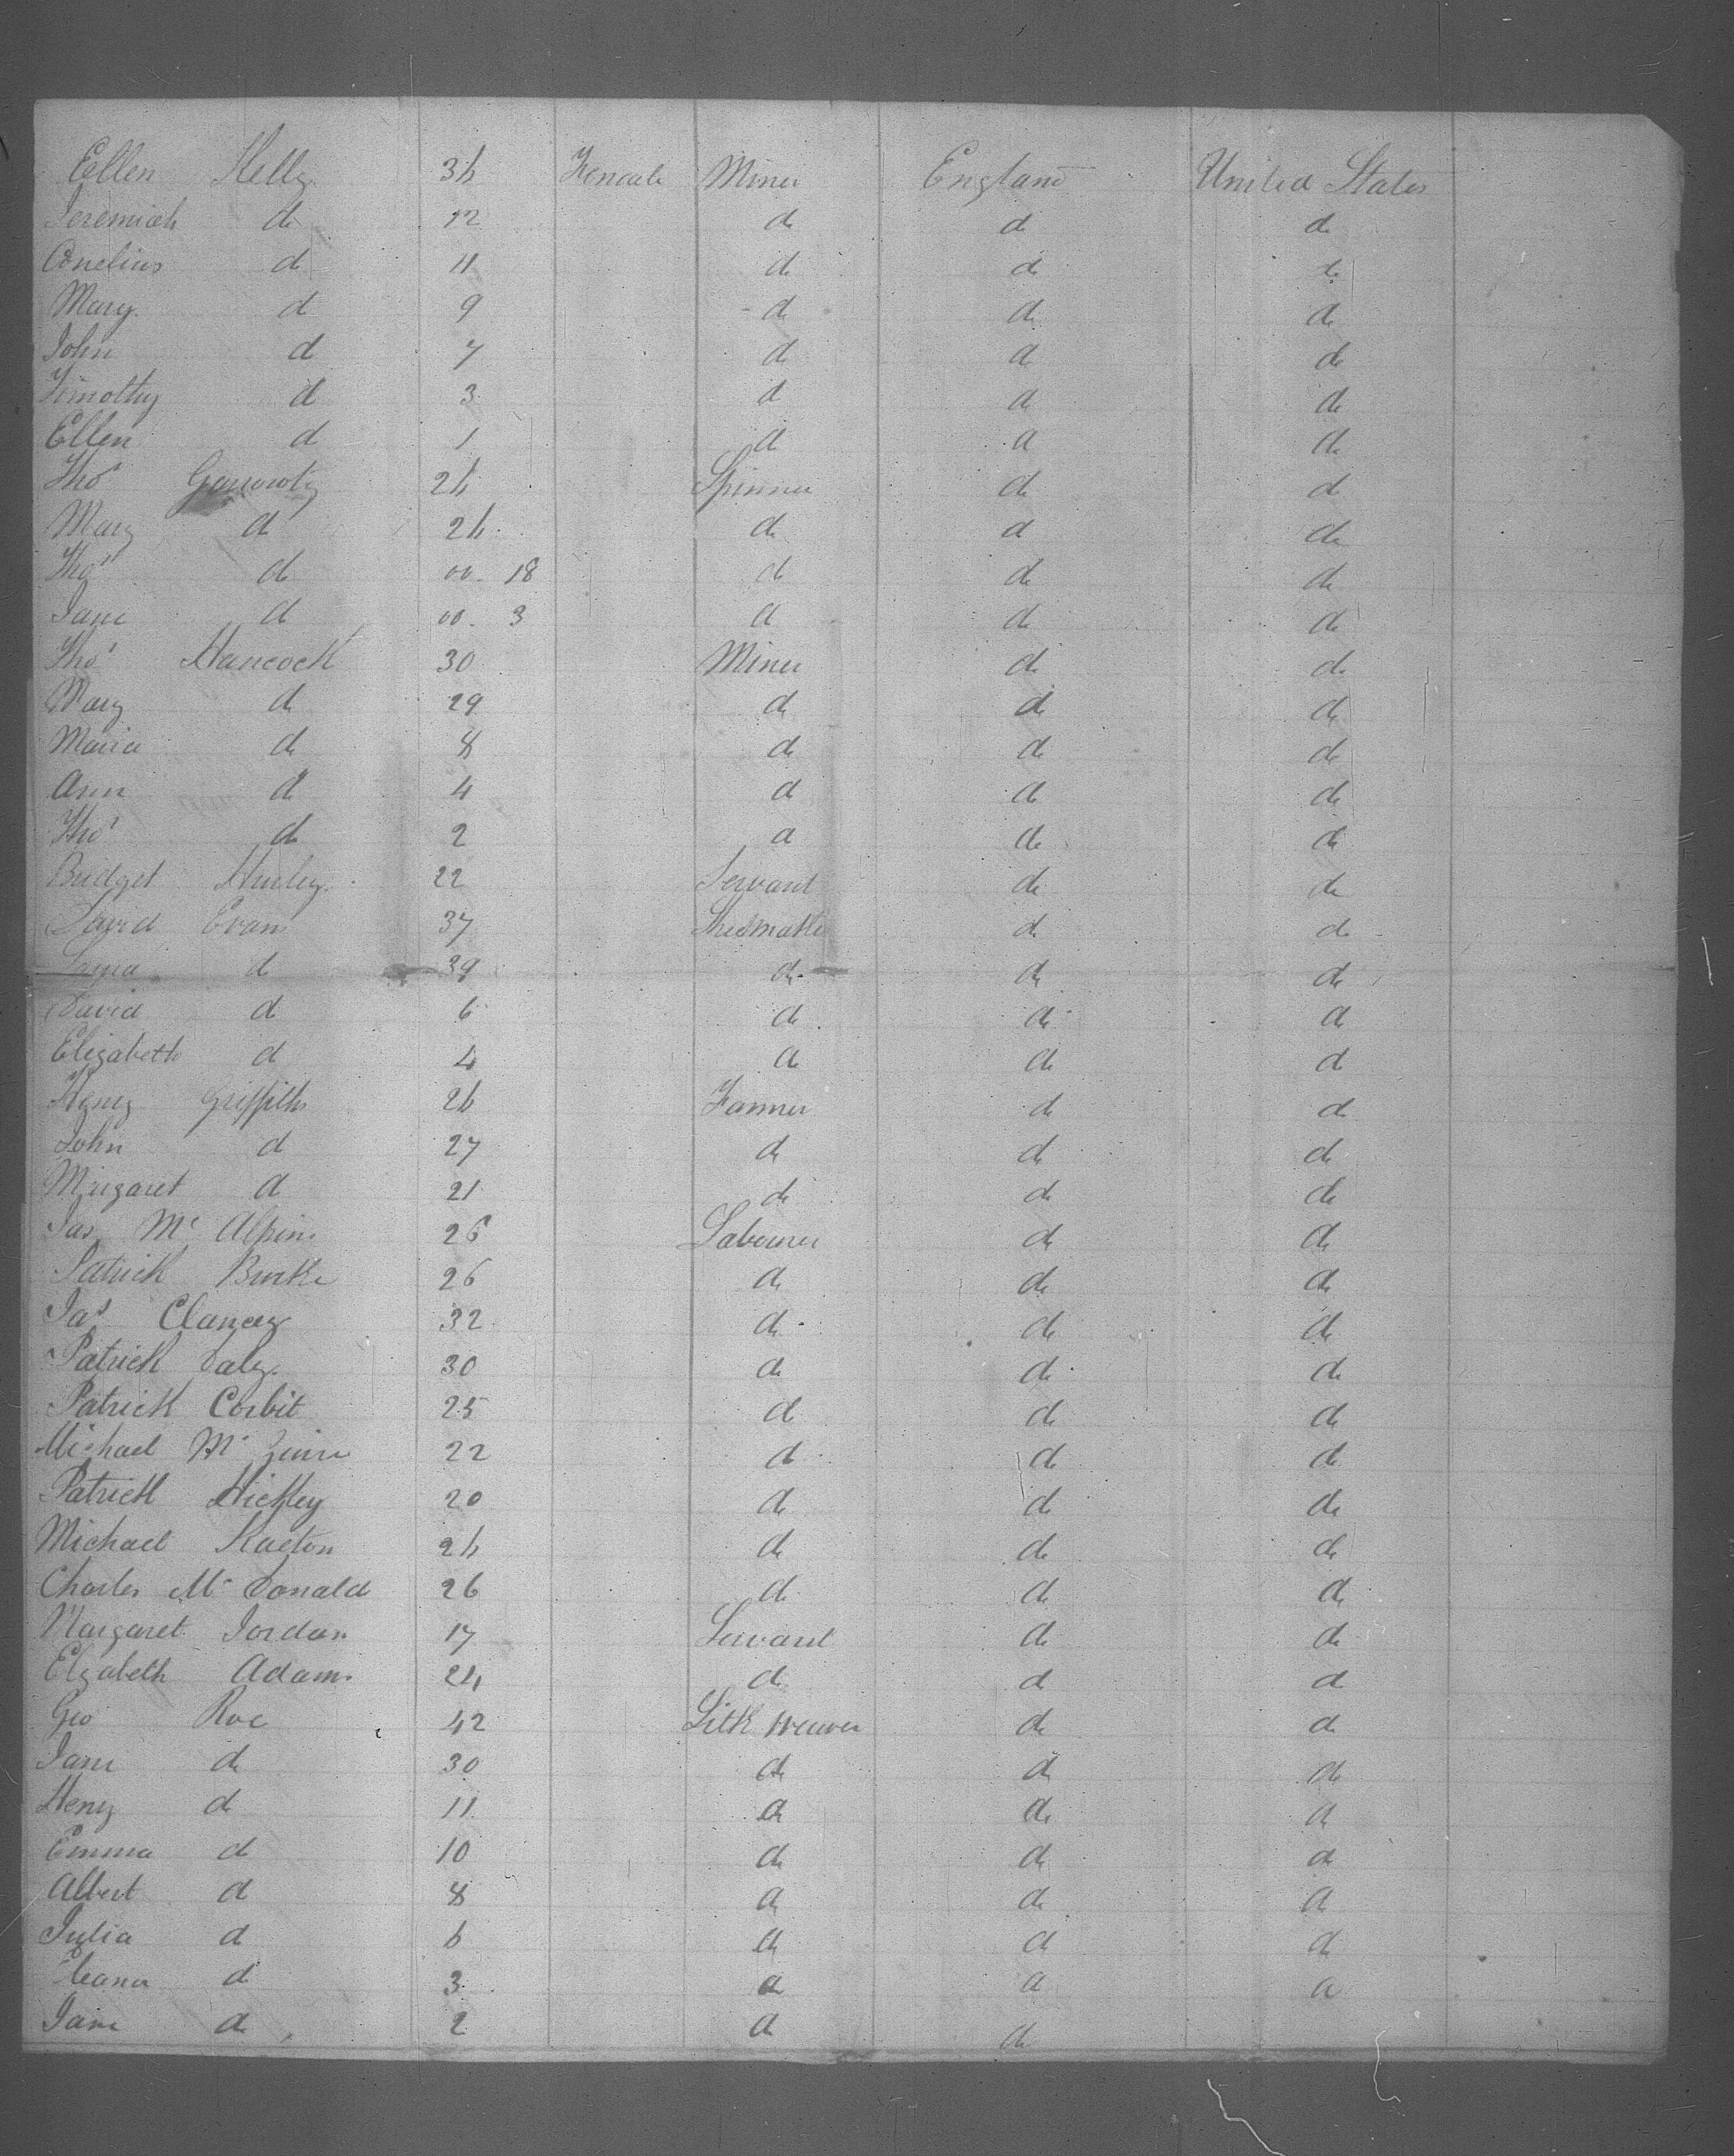 Ellen Kelly 34 Female Miner England United States
Jeremiah d 12 d d d
Conelius d 11 d d d
Mary d 9 d d d
John d 7 d d d
Timothy d 3 d d d
Ellen d 1 d d d
Thos 24 Spinner d d
Mary d 24 d d d
Thos d 00 - 18 d d d
Jane d 00 - 3 d d d
Thos Hancock 30 Miner d d
Mary d 29 d d d
Maria d 8 d d d
Ann d 4 d d d
Thos d 2 d d d
Bridget Hurley 22 Servant d d
David Evans 37 d d
d 39 d d d
David d 6 d d d
Elizabeth d 4 d d d
Henry Griffiths 26 Farmer d d
John d 27 d d d
Margaret d 21 d d d
Jas Mc Alpine 25 Labourer d d
Patrick Burke 26 d d d
Jas Clancey 32 d d d
Patrick Daley 30 d d d
Patrick Corbit 25 d d d
Michael Mc 22 d d d
Patrick Hickley 20 d d d
Michael 24 d d d
Charles Mc Donald 26 d d d
Margaret Jordan 17 Servant d d
Elzabeth Adams 24 d d d
Geo Roe 42 Silk weaver d d
Jane d 30 d d d
Henry d 11 d d d
Emma d 10 d d d
Albert d 8 d d d
Julia d 6 d d d
d 3 d d d
Jane d 2 d d